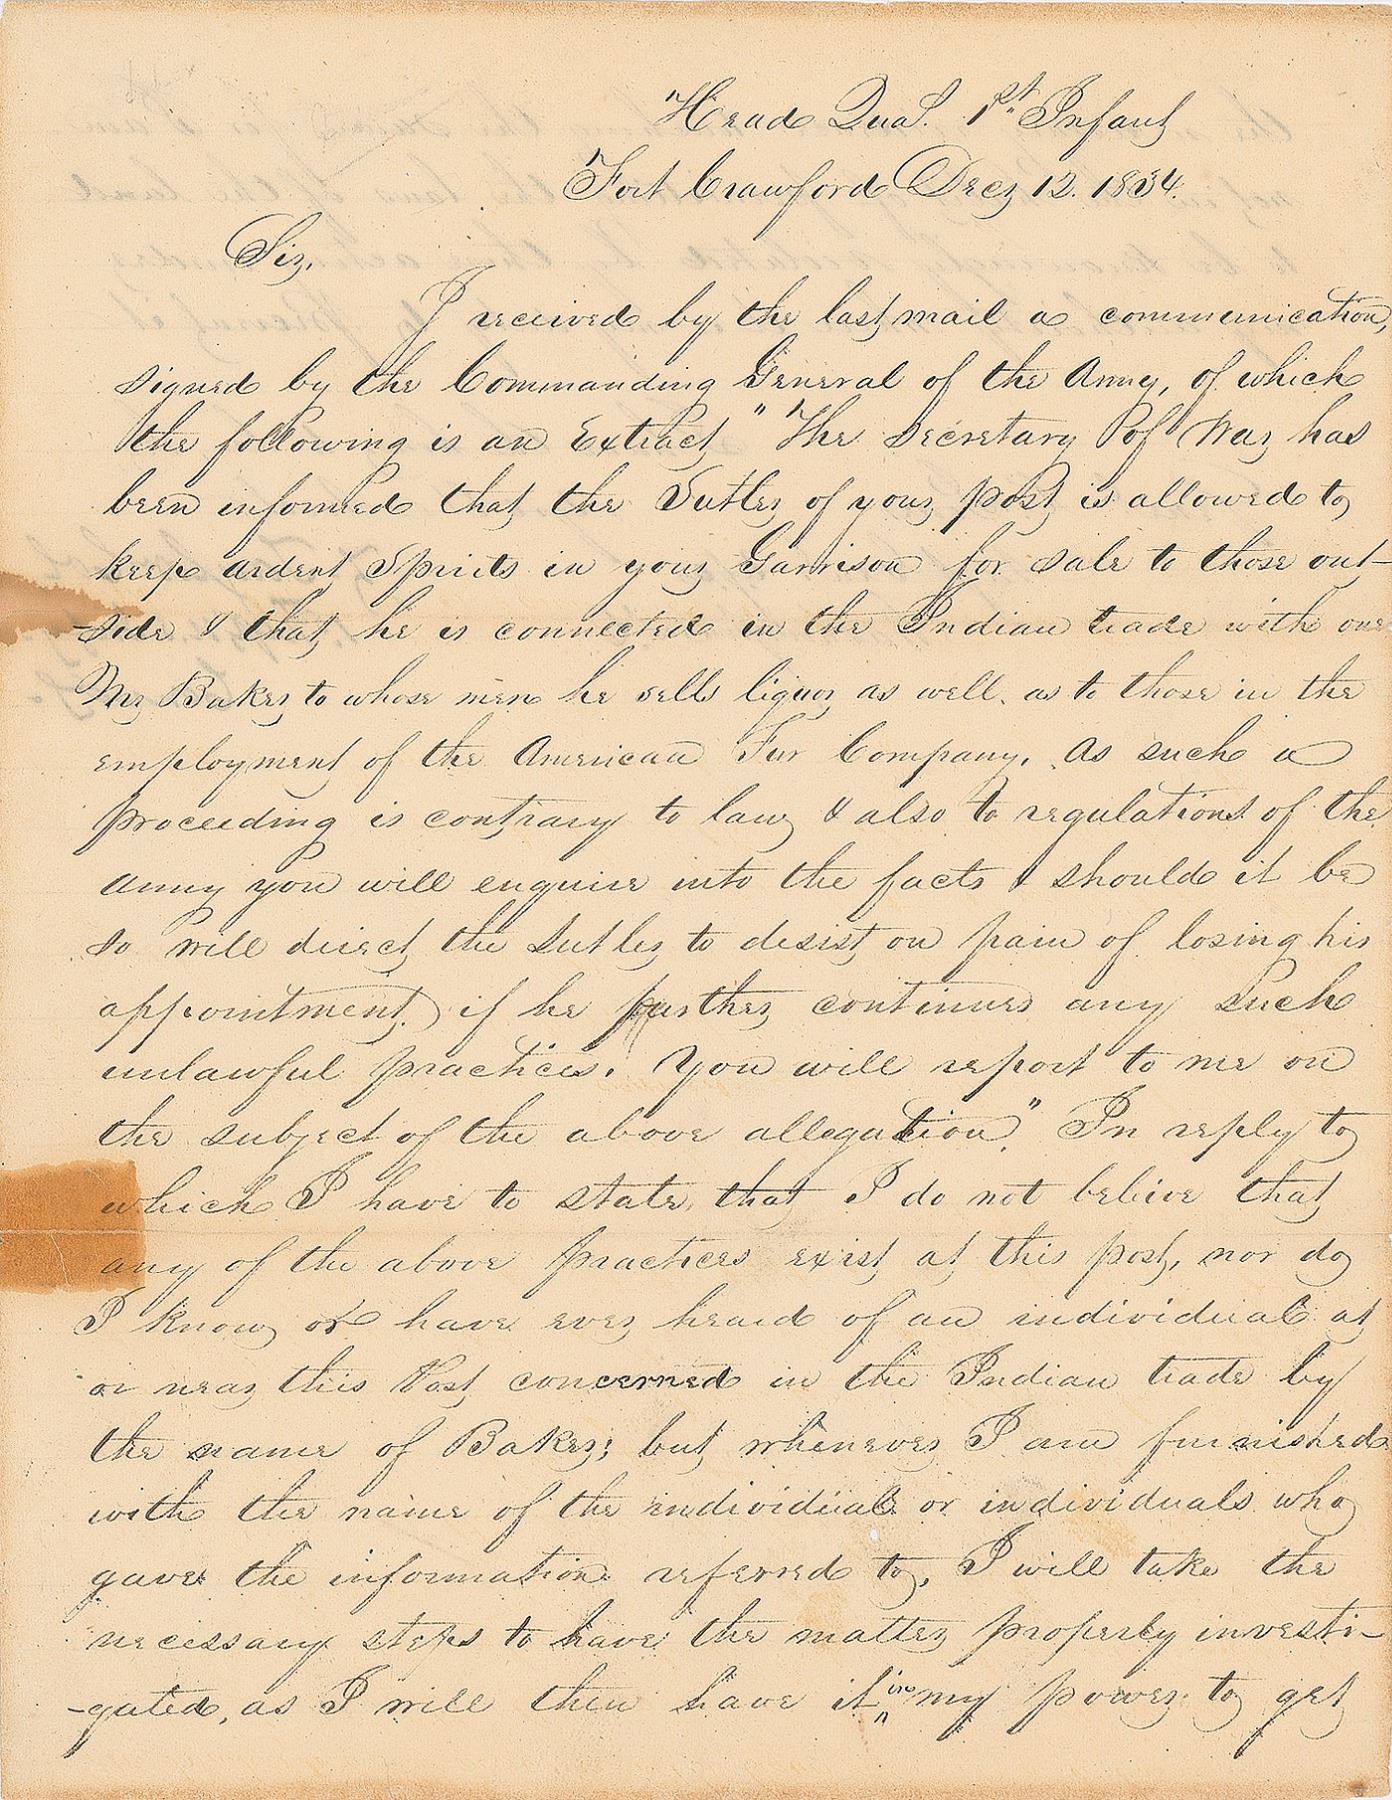 Head Qua^s. 1st. Infanty
Fort Crawford Decr 12. 1834.
Sir,
I received by the last mail a communication,
signed by the Commanding General of the Army, of which
the following is an Extract "The Secretary of War has
been informed that the Sutler of your post is allowed to
keep ardent Spirits in your Garrison for sale to those out-
-side & that he is connected in the Indian trade with one
Mr Baker to whose men he sells liquor as well. as to those in the
employment of the American Fur Company. As such a
proceeding is contrary to law & also to regulations of the
Army you will enquire into the facts & should it be
so will direct the Sutler to desist on pain of losing his
appointment. if he further continues any such
unlawful practices. You will report to me on
the subject of the above allegation." In reply to
which I have to state, that I do not belive that
any of the above practices exist at this post, nor do
I know or have ever heard of an individual at
or near this Post concerned in the Indian trade by
the name of Baker; but whenever I am furnished
with the name of the individual or individuals who
gave the information referred to, I will take the
necessary steps to have the matter properly investi-
-gated, as I will then have it in my power to get